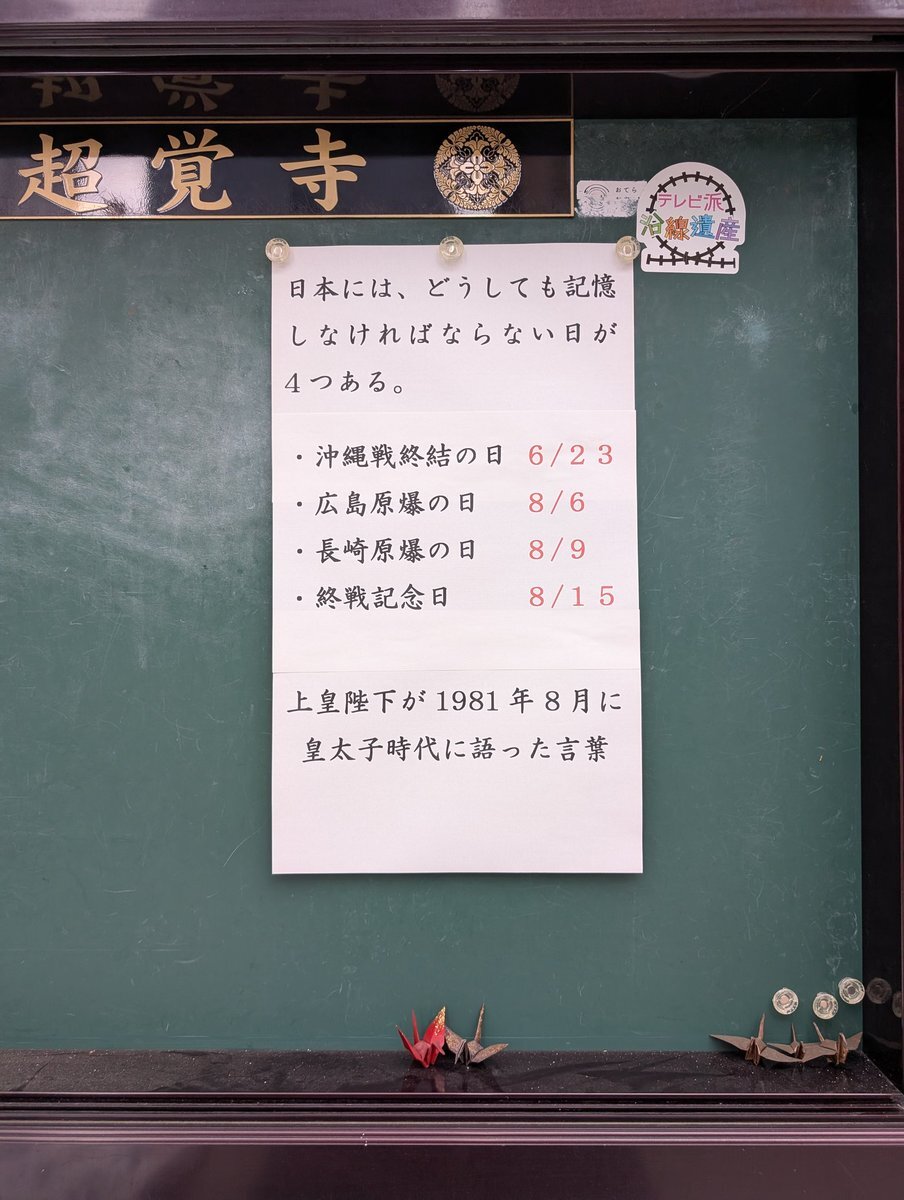 超覚寺
おてら
テレビ派
沿線遺産
日本には、どうしても記憶
しなければならない日が
4つある。
・沖縄戦終結の日 6/23
・広島原爆の日 8/6
・長崎原爆の日 8/9
・終戦記念日 8/15
上皇陛下が1981年8月に
皇太子時代に語った言葉